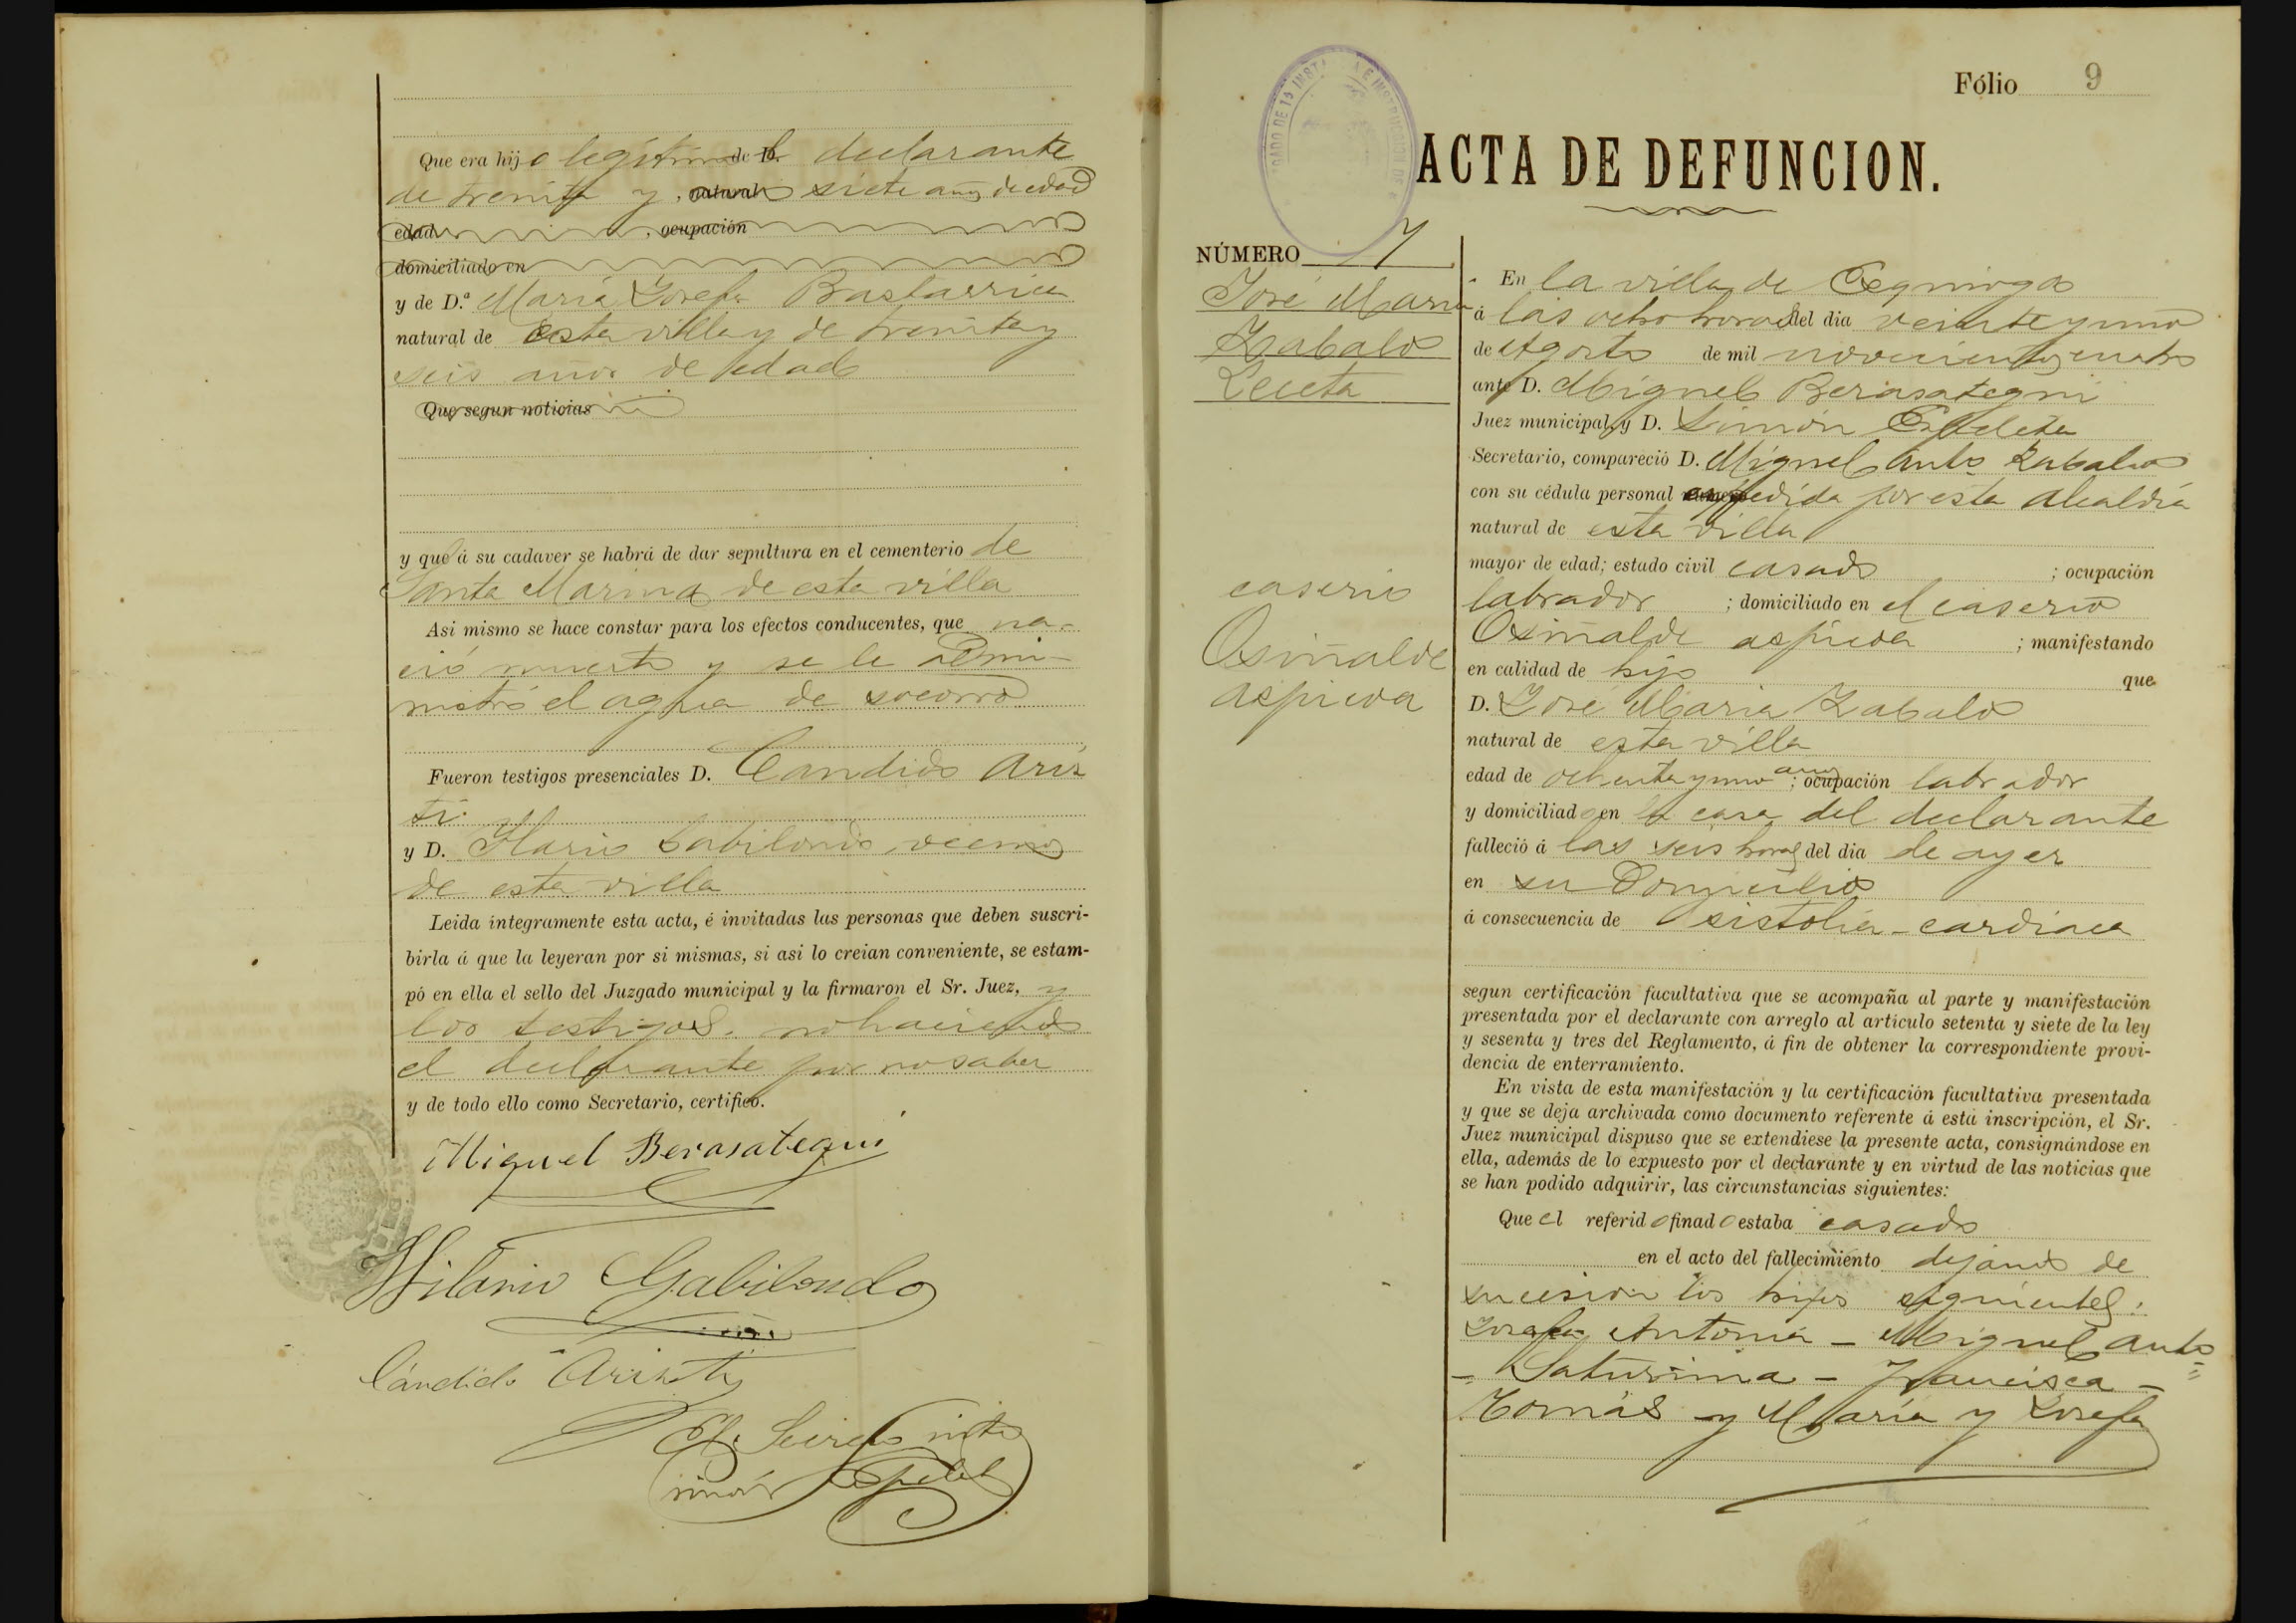 Que era hijo legítimo del declarante
de treinta y siete años de edad
edad , ocupación
domiciliado en
y de D.ª María Josefa Bastarrica
natural de esta villa y de treinta y
seis años de edad
Que segun noticias
y que á su cadaver se habrá de dar sepultura en el cementerio de
Santa Marina de esta villa
Asi mismo se hace constar para los efectos conducentes, que na-
ció muerto y se le admi-
nistró el agua de socorro
Fueron testigos presenciales D. Candido Ariz
ti
y D. Ilario Gabilondo vecinos
de esta villa
Leida íntegramente esta acta, é invitadas las personas que deben suscri-
birla á que la leyeran por si mismas, si asi lo creian conveniente, se estam-
pó en ella el sello del Juzgado municipal y la firmaron el Sr. Juez, y
los testigos. no haciendo
el declarante por no saber
y de todo ello como Secretario, certifico.
Miguel Berasategui
Hilario Gabilondo
Cándido Arizti
El Secretario
Simón
Fólio 9
ACTA DE DEFUNCION.
NÚMERO 7
José Maria
Zabalo
Leceta
caserio
Osiñalde
aspicoa
En la villa de
á las ocho horas del dia veinte y uno
de Agosto de mil novecientos cuatro
ante D. Miguel Berasategui
Juez municipal, y D. Simón
Secretario, compareció D. Miguel Anto Zabalo
con su cédula personal expedida por esta Alcaldía
natural de esta villa
mayor de edad; estado civil casado ; ocupación
labrador ; domiciliado en el caserio
Osiñalde aspicoa ; manifestando
en calidad de hijo que
D. José Maria Zabalo
natural de esta villa
edad de ochenta y uno años; ocupación labrador
y domiciliado en la casa del declarante
falleció á las seis horas del dia de ayer
en su Domicilio
á consecuencia de Asistolia-cardiaca
segun certificación facultativa que se acompaña al parte y manifestación
presentada por el declarante con arreglo al artículo setenta y siete de la ley
y sesenta y tres del Reglamento, á fin de obtener la correspondiente provi-
dencia de enterramiento.
En vista de esta manifestación y la certificación facultativa presentada
y que se deja archivada como documento referente á esta inscripción, el Sr.
Juez municipal dispuso que se extendiese la presente acta, consignándose en
ella, además de lo expuesto por el declarante y en virtud de las noticias que
se han podido adquirir, las circunstancias siguientes:
Que el referido finado estaba casado
en el acto del fallecimiento dejando de
sucesion los hijos siguientes:
Josefa Antonia - Miguel Anto
- Saturnina - Francisca -
Tomás y María y Josefa